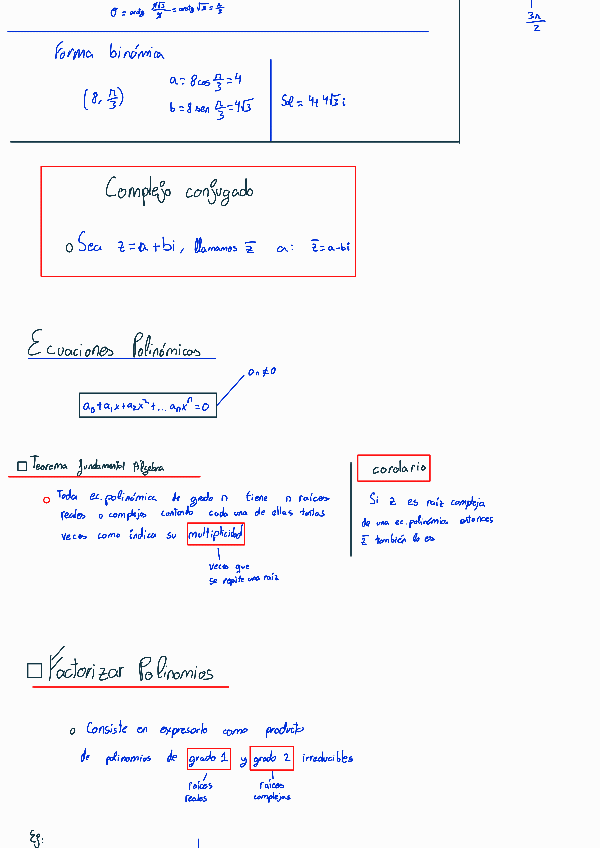 σ = arctg 4√3/4 = arctg √3 = π/3
3π/2
Forma binómica
(8, π/3)
a = 8 cos π/3 = 4
b = 8 sen π/3 = 4√3
Sol = 4+4√3 i
Complejo conjugado
o Sea z = a + bi, llamamos z̅ a: z̅ = a-bi
Ecuaciones Polinómicas
an ≠ 0
a₀+a₁x+a₂x²+...aₙxⁿ=0
Teorema fundamental Álgebra
Toda ec. polinómica de grado n tiene n raíces
reales o complejas contando cada una de ellas tantas
veces como indica su multiplicidad
veces que
se repite una raíz
corolario
Si z es raíz compleja
de una ec. polinómica entonces
z̅ también lo es
Factorizar Polinomios
o Consiste en expresarlo como producto
de polinomios de grado 1 y grado 2 irreducibles
raíces
reales
raíces
complejas
Eg: